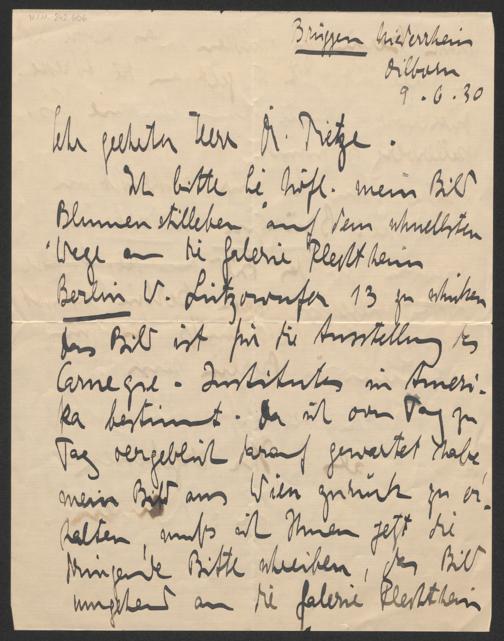 Brüggen Niederrhein
Dilborn
9.6.30
Sehr geehrter Herr Dr. Tietze.
Ich bitte Sie höfl. mein Bild
"Blumenstilleben" auf dem schnellsten
Wege an die Galerie Flechtheim
Berlin W. Lützowufer 13 zu schicken
das Bild ist für die Ausstellung des
Carnegie-Institutes in Ameri-
ka bestimmt. Da ich von Tag zu
Tag vergeblich darauf gewartet habe
mein Bild aus Wien zurück zu er-
halten, muß ich Ihnen jetzt die
dringende Bitte schreiben, das Bild
umgehend an die Galerie Flechtheim